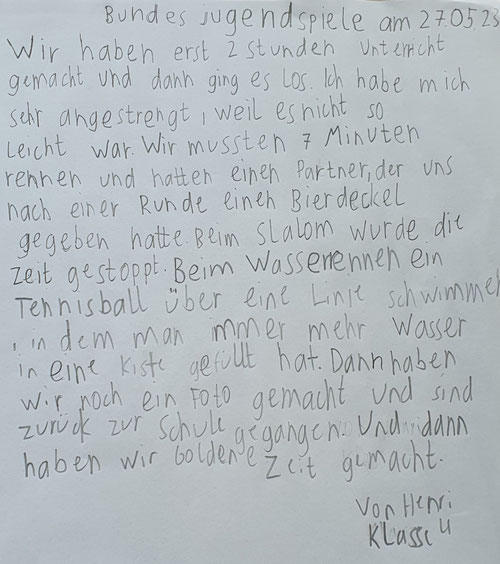 Bundesjugendspiele am 27.05.23
Wir haben erst 2 Stunden Unterricht
gemacht und dann ging es los. Ich habe mich
sehr angestrengt, weil es nicht so
leicht war. Wir mussten 7 Minuten
rennen und hatten einen Partner, der uns
nach einer Runde einen Bierdeckel
gegeben hatte. Beim Slalom wurde die
Zeit gestoppt. Beim Wasserrennen ein
Tennisball über eine Linie schwimmen
, in dem man immer mehr Wasser
in eine Kiste gefüllt hat. Dann haben
wir noch ein Foto gemacht und sind
zurück zur Schule gegangen. Und dann
haben wir Goldene Zeit gemacht.
Von Henri
Klasse 4